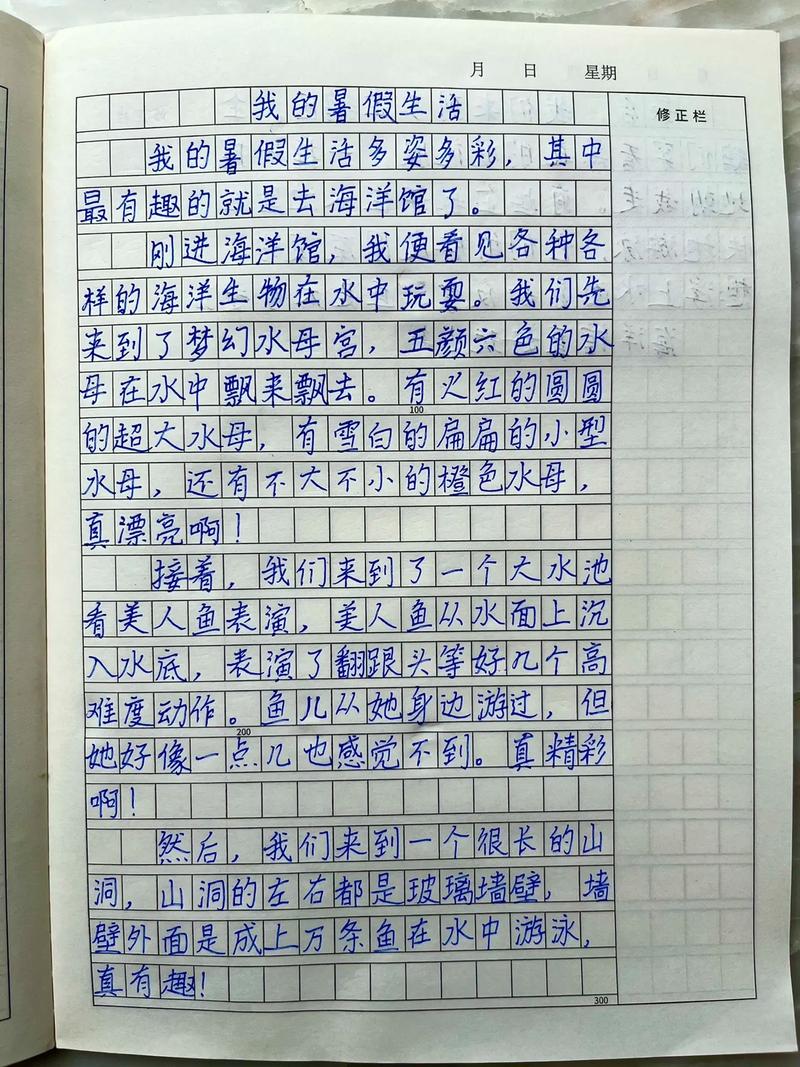 月 日 星期
修正栏
我的暑假生活
我的暑假生活多姿多彩，其中
最有趣的就是去海洋馆了。
刚进海洋馆，我便看见各种各
样的海洋生物在水中玩耍。我们先
来到了梦幻水母宫，五颜六色的水
母在水中飘来飘去。有火红的圆圆
100
的超大水母，有雪白的扁扁的小型
水母，还有不大不小的橙色水母，
真漂亮啊！
接着，我们来到了一个大水池
看美人鱼表演，美人鱼从水面上沉
入水底，表演了翻跟头等好几个高
难度动作。鱼儿从她身边游过，但
200
她好像一点儿也感觉不到。真精彩
啊！
然后，我们来到一个很长的山
洞，山洞的左右都是玻璃墙壁，墙
壁外面是成上万条鱼在水中游泳，
真有趣！
300